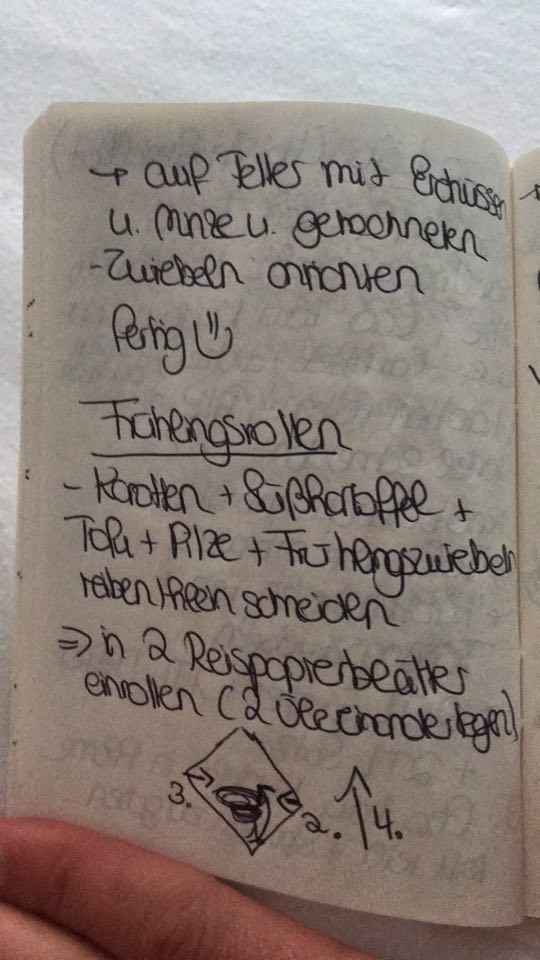 → auf Teller mit Erdnüssen
u. Minze u. getrockneten
-Zwiebeln anrichten
fertig
Frühlingsrollen
- Karotten + Süßkartoffel +
Tofu + Pilze + Frühlingszwiebeln
reiben/klein schneiden
⇒ in 2 Reispapierblätter
einrollen (2 übereinanderlegen)
3. 1 2. ↑ 4.